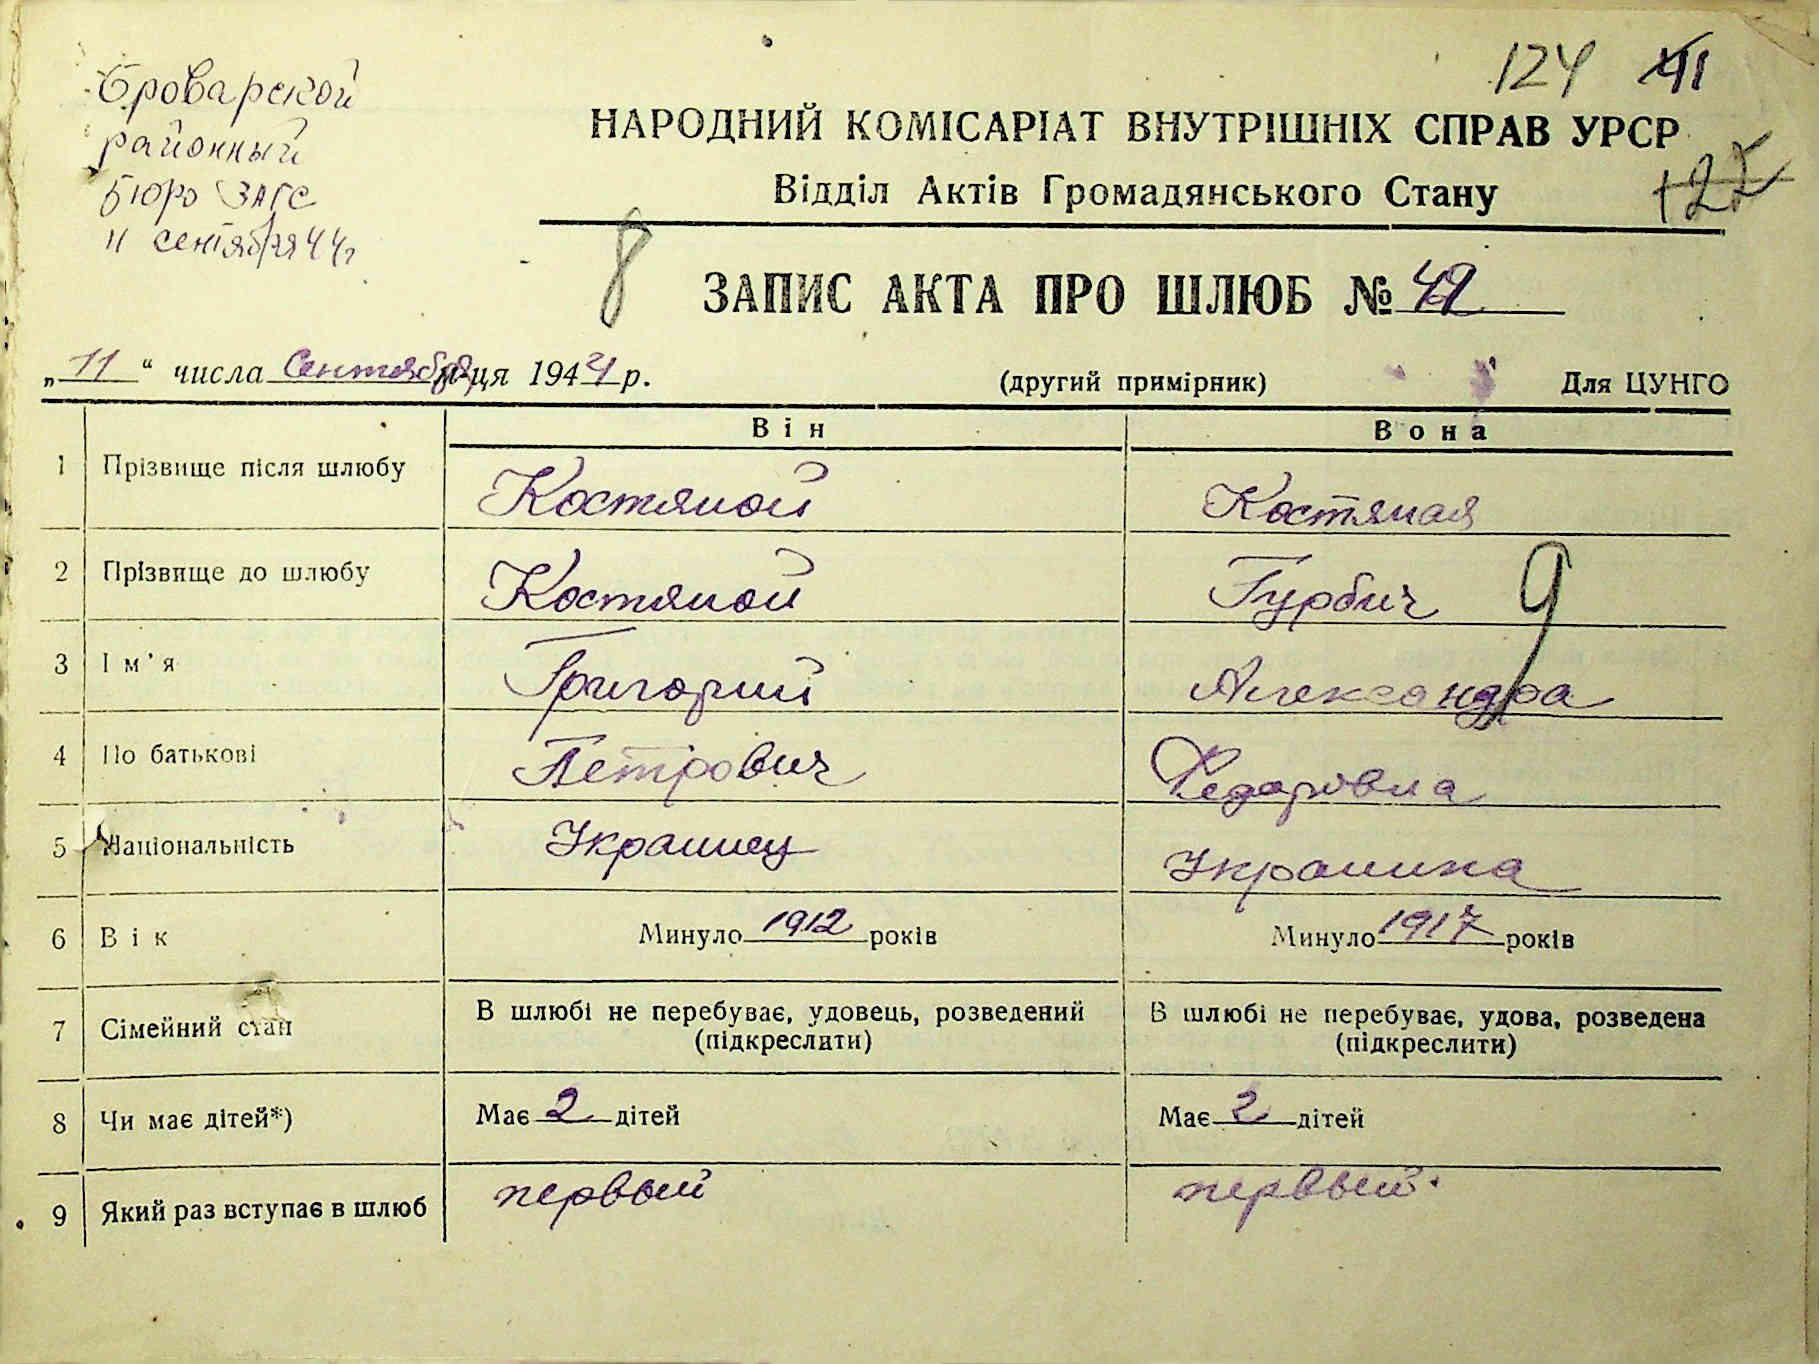 124
Броварской
районный
бюро ЗАГС
11 сентября 44г
НАРОДНИЙ КОМІСАРІАТ ВНУТРІШНІХ СПРАВ УРСР
Відділ Актів Громадянського Стану
125
8
ЗАПИС АКТА ПРО ШЛЮБ № 42
„11“ числа Сентября м-ця 1944 р.
(другий примірник)
Для ЦУНГО
Він
Вона
1 Прізвище після шлюбу Костяной Костяная
2 Прізвище до шлюбу Костяной Гурбич
9
3 Ім'я Григорий Александра
4 По батькові Петрович Федоровна
5 Національність Украинец Украинка
6 Вік Минуло 1912 років Минуло 1917 років
7 Сімейний стан В шлюбі не перебуває, удовець, розведений (підкреслити) В шлюбі не перебуває, удова, розведена (підкреслити)
8 Чи має дітей*) Має 2 дітей Має 2 дітей
9 Який раз вступає в шлюб первый первый.